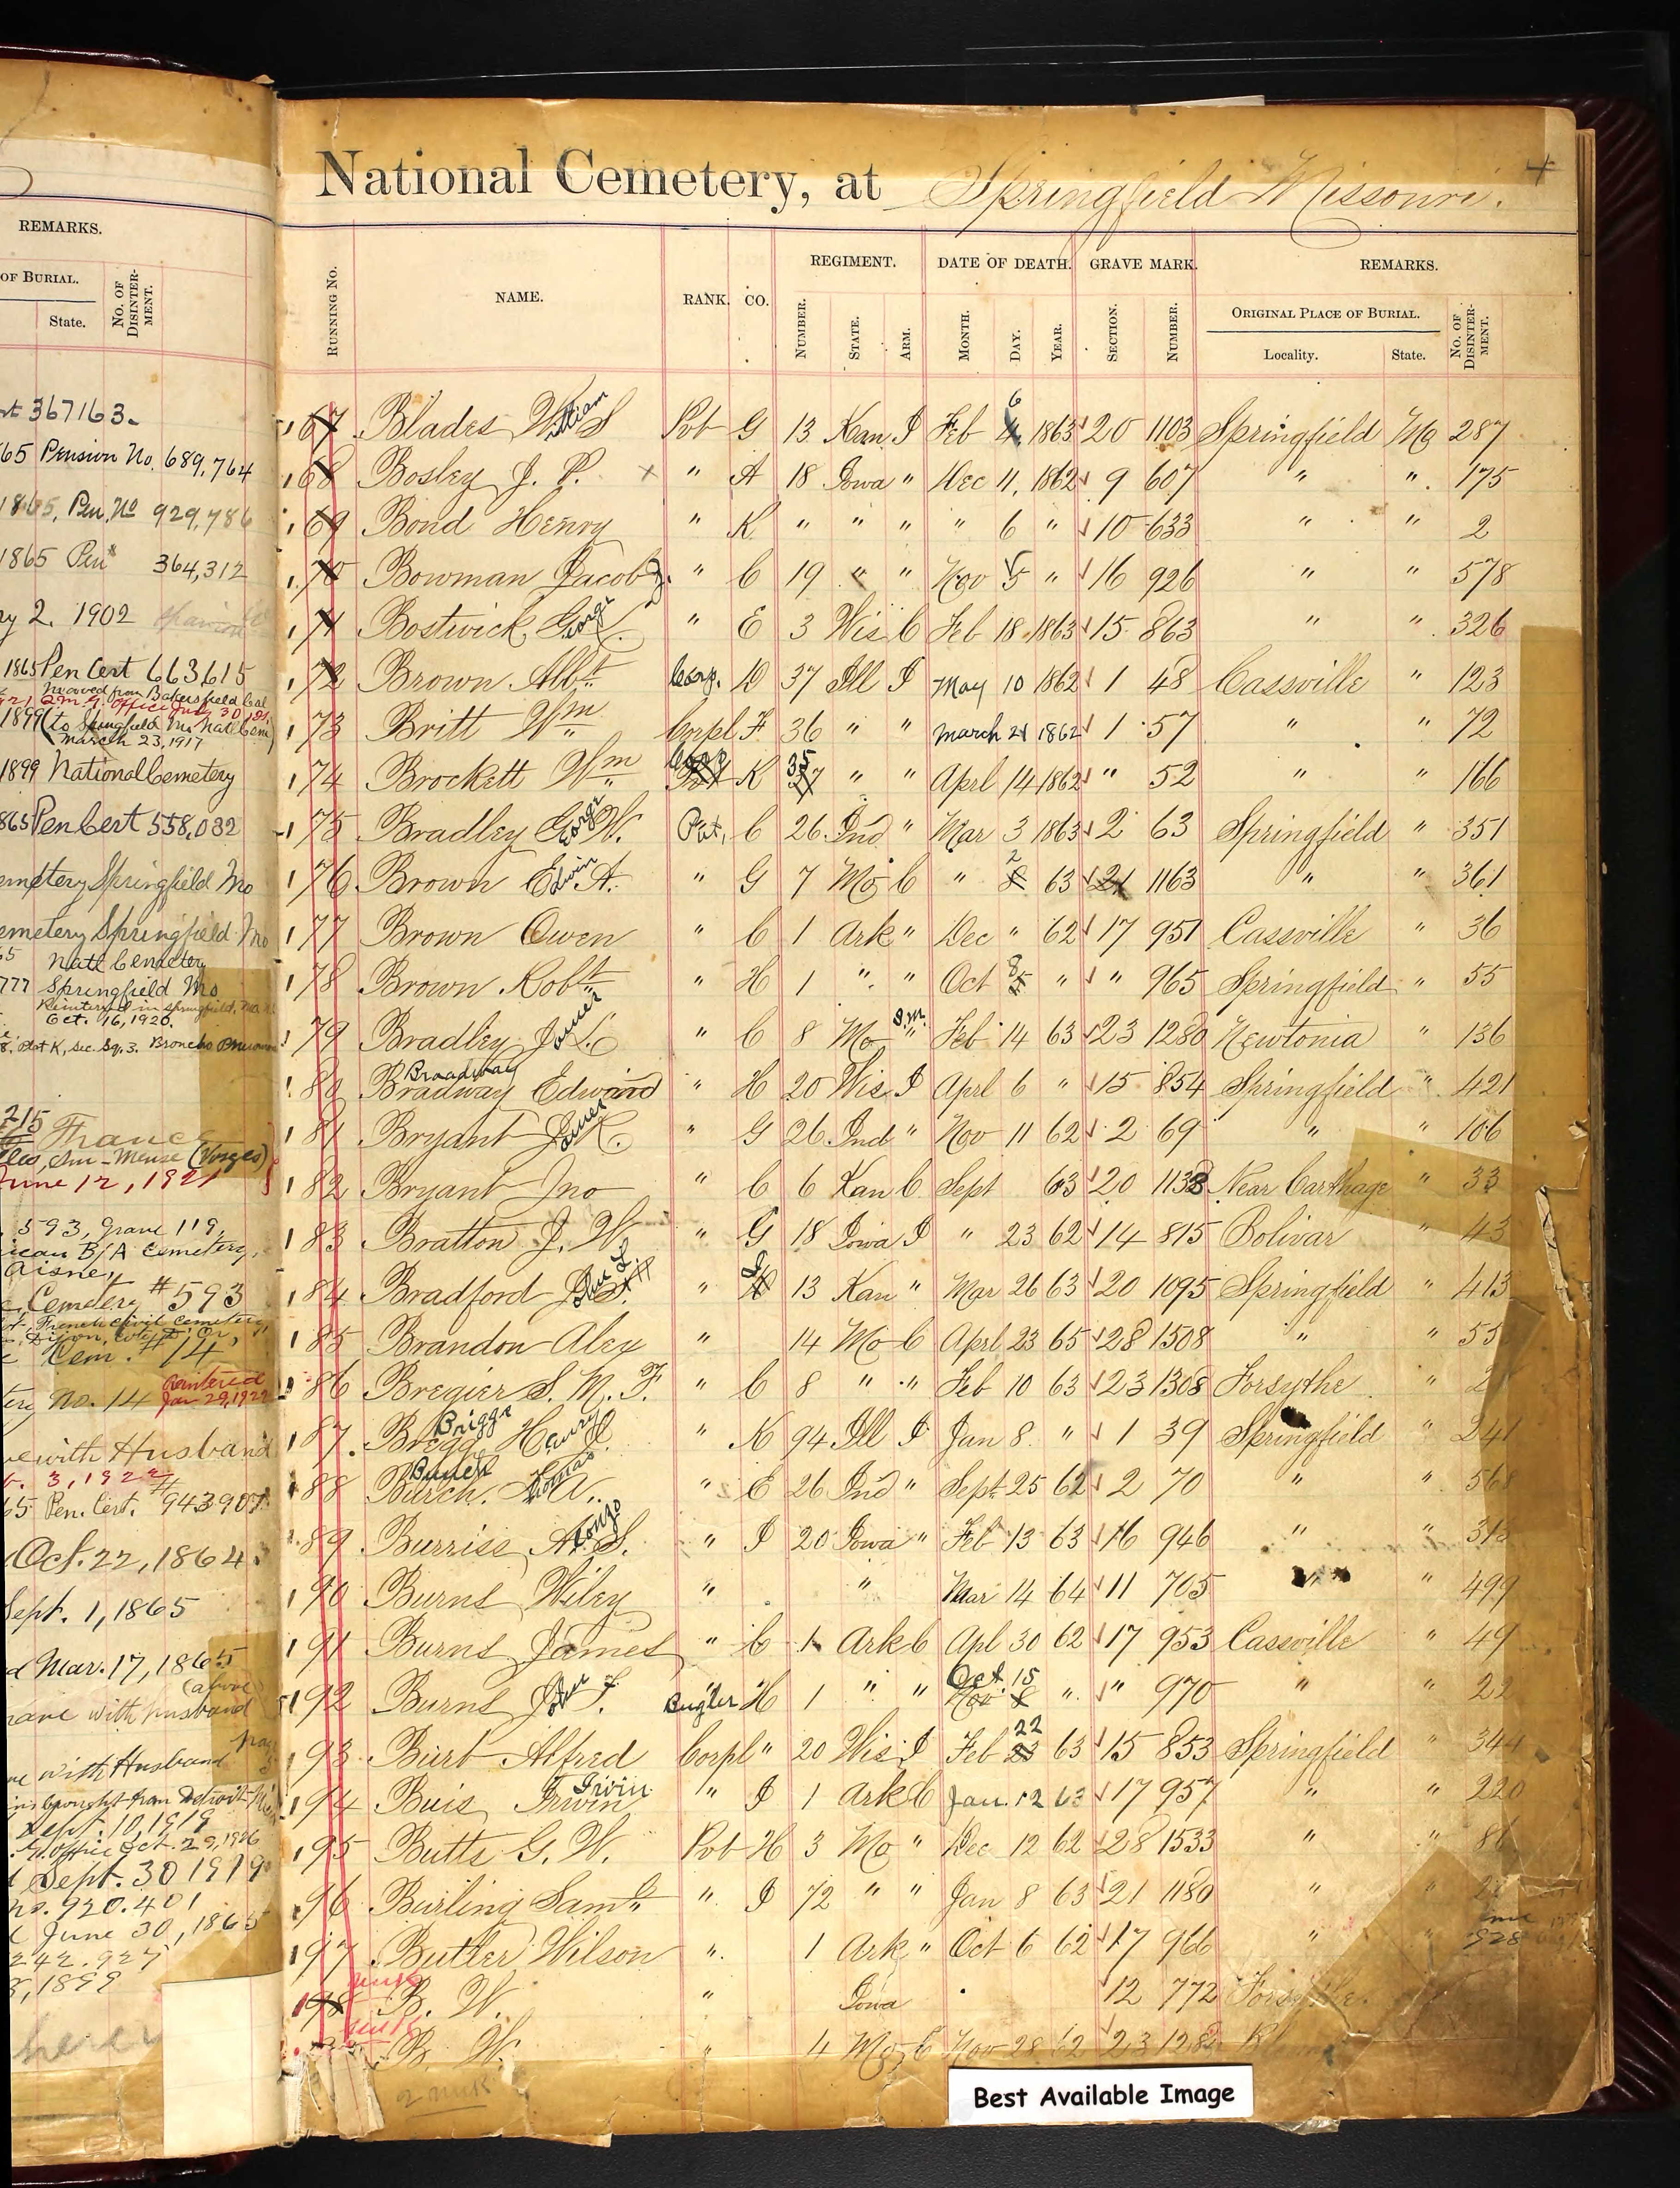 REMARKS.
OF BURIAL.
State.
No. OF DISINTER-MENT.
367163.
65 Pension No. 689,764
1865, Pen. No 929,786
1865 Pen 364,312
ry 2. 1902
1865 Pen Cert 663,615
moved from Bakersfield Cal
1899 (to Springfield Mo Natl Cem)
March 23, 1917
1899 National Cemetery
865 Pen Cert 558,032
emetery Springfield Mo
emetery Springfield Mo
65 Natl Cemetery
777 Springfield Mo
Reinterred in Springfield, Mo.
Oct. 16, 1920.
8. Plot K, Sec. Sq. 3. Broncho Pneumonia
215
France
(Vosges)
June 12, 1921
593, Grave 119,
ican B/A Cemetery,
Aisne,
Cemetery #593
French Civil Cemetery
Dijon, Cote D'Or,
Cem. #14
ery No. 14 Reinterred Jan 29, 1922
ve with Husband
. 3, 1922
65 Pen. Cert. #943907
Oct. 22, 1864
Sept. 1, 1865
d Mar. 17, 1865
(above
rave with husband
ve with Husband
brought from Detroit Mi
Sept. 10, 1919
Office Oct. 29, 1926
Sept. 30 1919
no. 920.401
June 30, 1865
242.927
, 1899
here
National Cemetery, at Springfield Missouri.
RUNNING NO. NAME. RANK. CO. REGIMENT. DATE OF DEATH. GRAVE MARK. REMARKS.
NUMBER. STATE. ARM. MONTH. DAY. YEAR. SECTION. NUMBER. ORIGINAL PLACE OF BURIAL. No. OF DISINTER-MENT.
Locality. State.
167 Blades William S Pvt G 13 Kan I Feb 6 1863 20 1103 Springfield Mo 287
168 Bosley J. P. x " A 18 Iowa " Dec 11, 1862 9 607 " " 175
169 Bond Henry " K " " " " 6 " 10 633 " " 2
170 Bowman Jacob J. " C 19 " " Nov 5 " 16 926 " " 578
171 Bostwick George " E 3 Wis C Feb 18 1863 15 863 " " 326
172 Brown Albt Corp. D 37 Ill I May 10 1862 1 48 Cassville " 123
173 Britt Wm Corpl F 36 " " March 21 1862 1 57 " " 72
174 Brockett Wm Corp K 35 " " Aprl 14 1862 " 52 " " 166
175 Bradley George W. Pvt, C 26 Ind " Mar 3 1863 2 63 Springfield " 351
176 Brown Edwin A. " G 7 Mo C " 2 63 21 1163 " " 361
177 Brown Owen " C 1 Ark " Dec " 62 17 951 Cassville " 36
178 Brown Robt " H 1 " " Oct 8 " " 965 Springfield " 55
179 Bradley James L " C 8 Mo S.M. Feb 14 63 23 1280 Newtonia " 136
180 Bradway Broadway Edward " H 20 Wis I Aprl 6 " 15 854 Springfield " 421
181 Bryant James K. " G 26 Ind " Nov 11 62 2 69 " " 106
182 Bryant Jno " C 6 Kan C Sept 63 20 1133 Near Carthage " 33
183 Bratton J. W. " G 18 Iowa I " 23 62 14 815 Bolivar " 43
184 Bradford " 13 Kan " Mar 26 63 20 1095 Springfield " 413
185 Brandon Alex " 14 Mo C Aprl 23 65 28 1508 " " 55
186 Bregier S. M. F. " C 8 " " Feb 10 63 23 1308 Forsythe "
187. Bregg Briggs Henry H. " K 94 Ill I Jan 8 " 1 39 Springfield " 241
188 Burch. Thomas A. " E 26 Ind " Sept 25 62 2 70 " " 568
189 Burriss Alonzo S. " I 20 Iowa " Feb 13 63 16 946 " "
190 Burns Wiley " " Mar 14 64 11 705 " " 499
191 Burns James " C 1 Ark C Apl 30 62 17 953 Cassville " 49
192 Burns John F. Bugler H 1 " " Oct. 15 " " 970 " " 22
193 Burt Alfred Corpl " 20 Wis I Feb 22 63 15 853 Springfield " 344
194 Buis Irwin Irvin " I 1 Ark C Jan. 12 63 17 957 " " 220
195 Butts G. W. Pvt H 3 Mo " Dec 12 62 28 1533 " "
196 Burling Saml " I 72 " " Jan 8 63 21 1180 "
197 Butler Wilson " 1 Ark " Oct 6 62 17 966 " " 928
198 B. W. unk " Iowa 12 772 Forsythe.
B. W. unk " 4 Mo C Nov 28 62 23
2 unk
Best Available Image